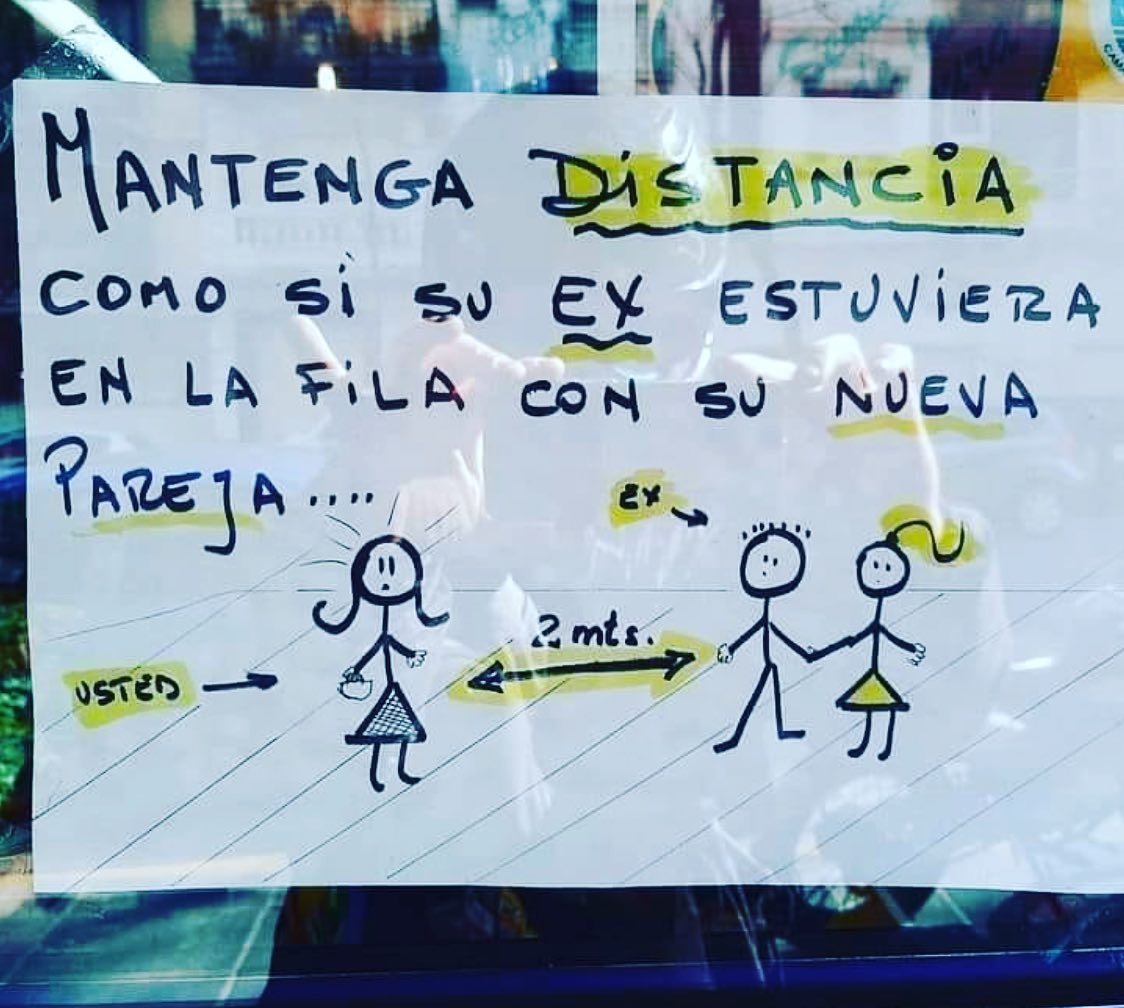 MANTENGA DiSTANCiA
COMO Si SU EX ESTUViERA
EN LA FiLA CON SU NUEVA
PAREJA....
EX
2 mts.
USTED